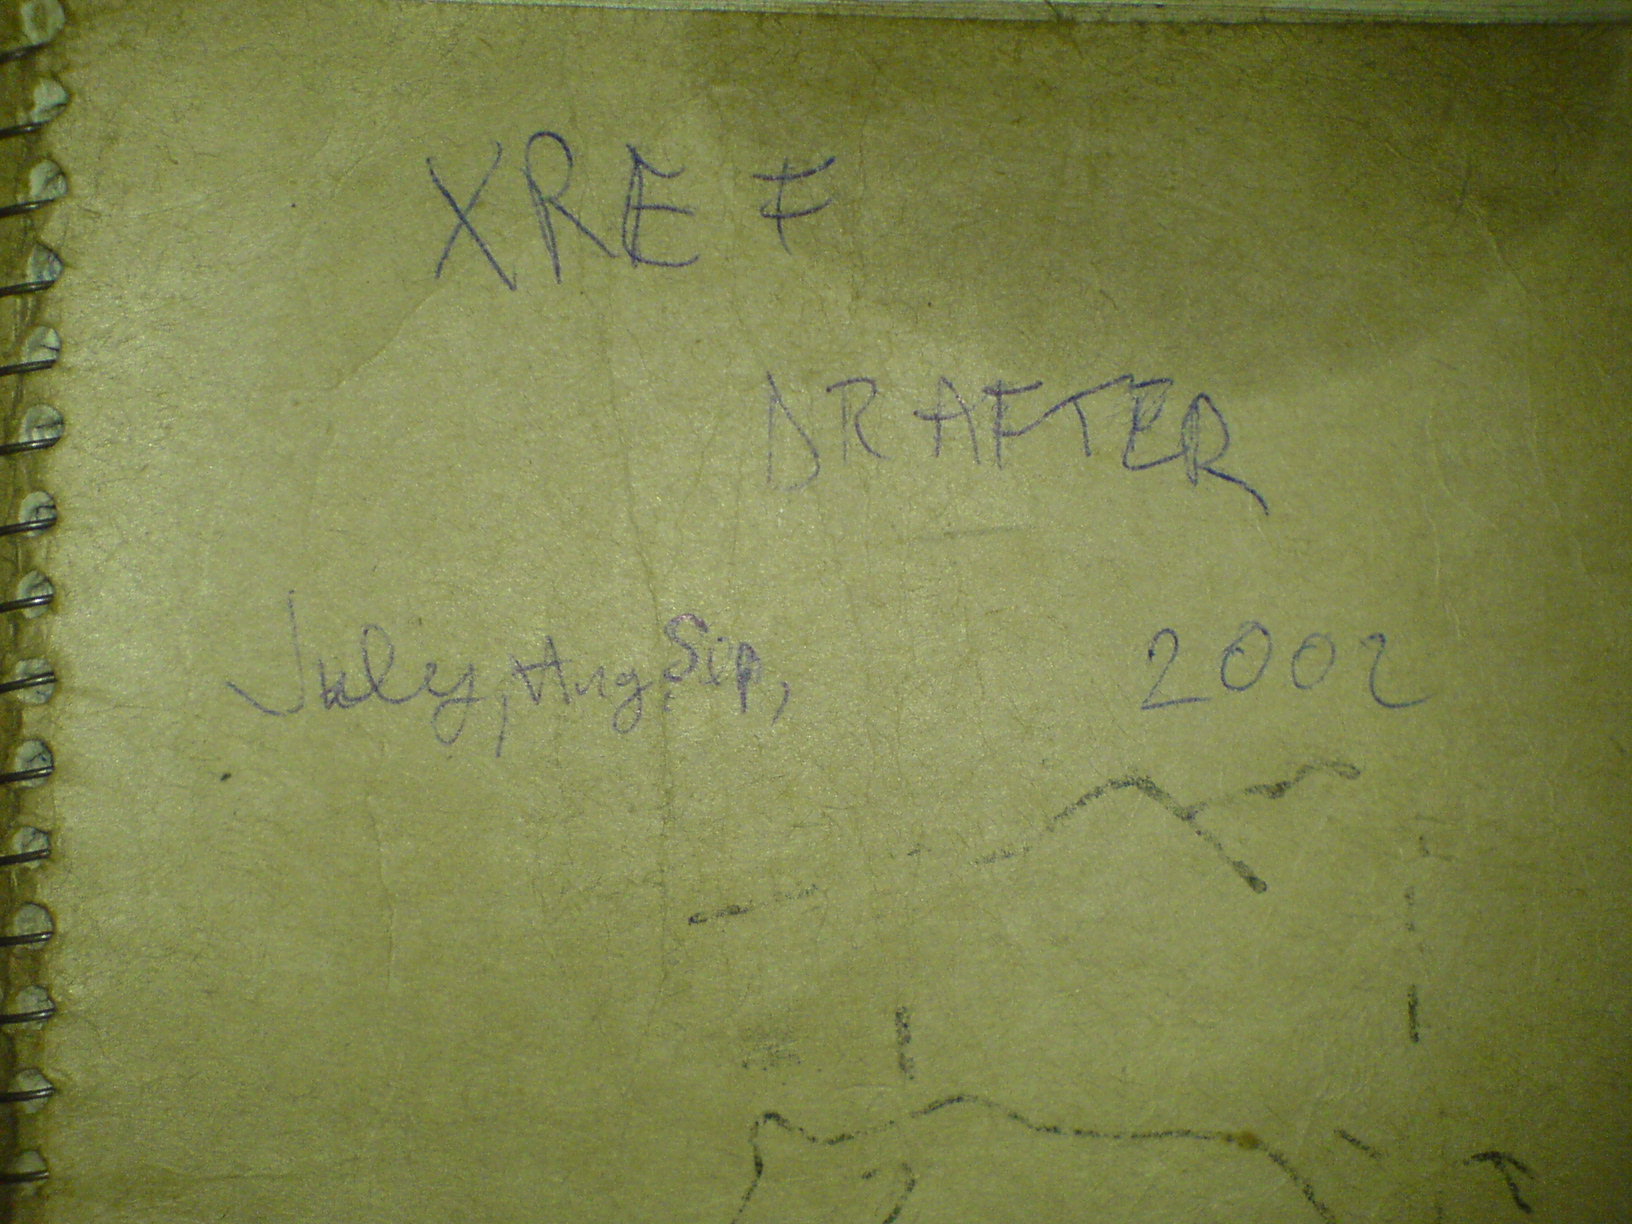 XREF
DRAFTER
July, Aug, Sip, 2002